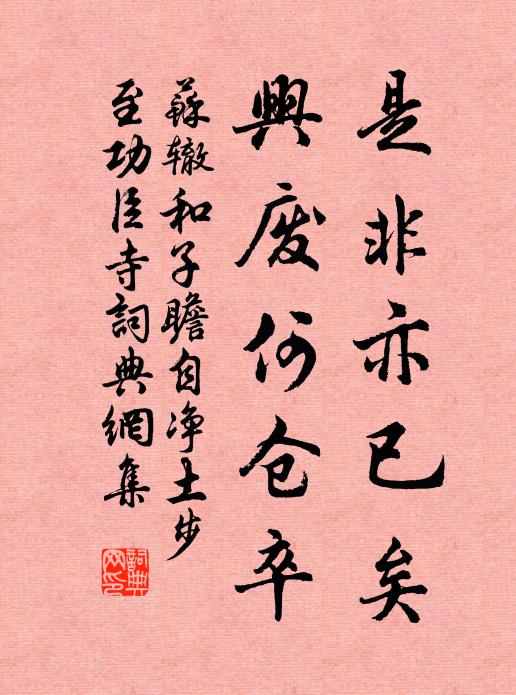 是非亦已矣
興废何仓卒
蘇辙和子瞻自净土步
至功臣寺詞典網集
詞典網印